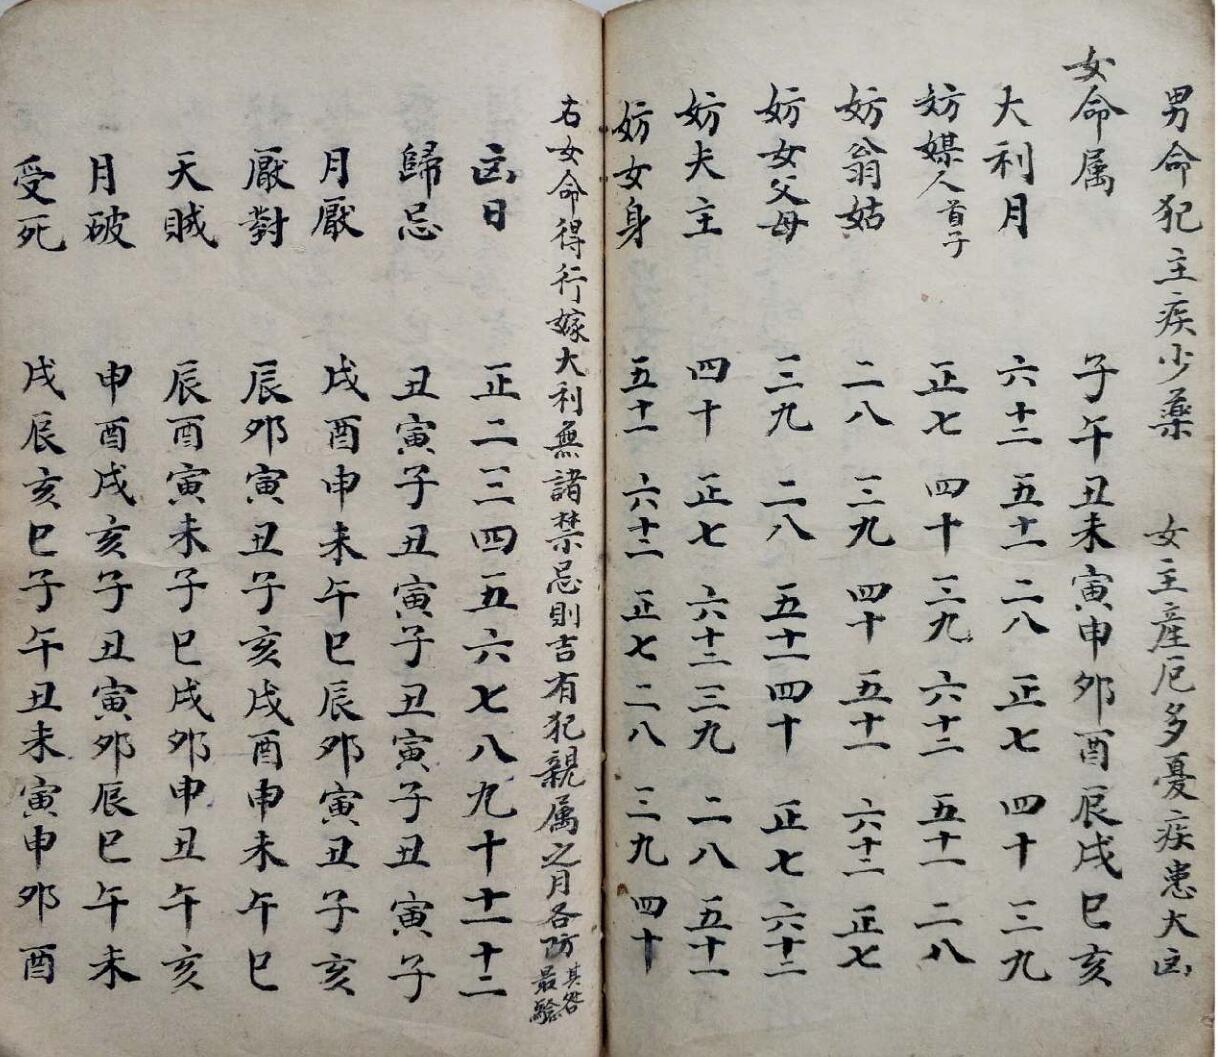 男命犯主疾少藥 女主產厄多憂疾患大凶
女命属 子午丑未寅申卯酉辰戌巳亥
大利月 六十二 五十一 二八 正七 四十 三九
妨媒人首子 正七 四十 三九 六十二 五十一 二八
妨翁姑 二八 三九 四十 五十一 六十二 正七
妨女父母 三九 二八 五十一 四十 正七 六十二
妨夫主 四十 正七 六十二 三九 二八 五十一
妨女身 五十一 六十二 正七 二八 三九 四十
右女命得行嫁大利無諸禁忌則吉有犯親属之月各防其咎最驗
凶日 正二三四五六七八九十十一十二
歸忌 丑寅子丑寅子丑寅子丑寅子
月厭 戌酉申未午巳辰卯寅丑子亥
厭對 辰卯寅丑子亥戌酉申未午巳
天賊 辰酉寅未子巳戌卯申丑午亥
月破 申酉戌亥子丑寅卯辰巳午未
受死 戌辰亥巳子午丑未寅申卯酉